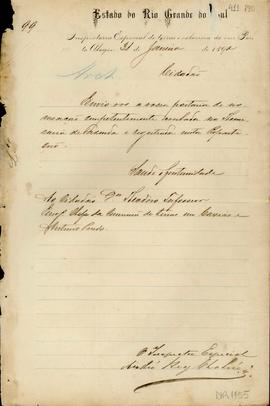 99
Estado do Rio Grande do Sul
Inspectoria Especial de terras e colonisação em Por-
to Alegre 21 de Janeiro de 189
Cidadão
Envio-vos a vossa portaria de no-
meação competentemente na Thesou-
raria de Fazenda e registrada nesta Reparti-
ção.
Saude e fraternidade
Ao Cidadão Dr.
Engº Chefe da Commissão de terras em Caxias e
Antonio Prado.
O Inspector Especial